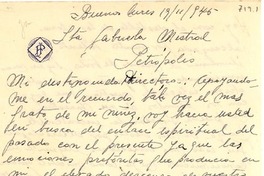 Buenos Aires 19/11/945
717.1
Sta Gabriela Mistral
Petrópolis
Mi distinguida Directora: apoyando-
me en el recuerdo, tal vez el mas
grato de mi niñez, voy hacia usted
en busca del enlace espiritual del
pasado con el presente ya que las
emociones pretéritas que producía en
mi el elevado